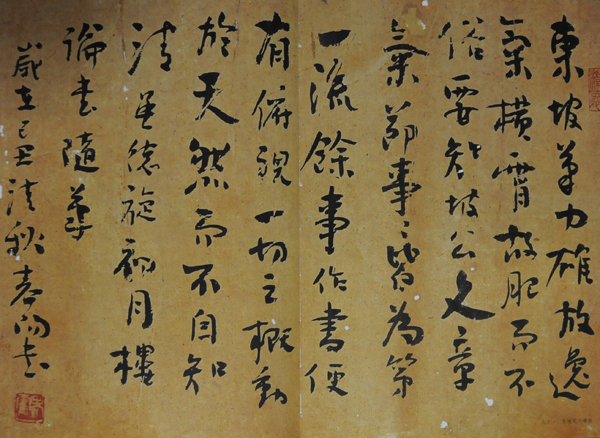 東坡筆力雄放逸
氣橫霄故肥而不
俗要知坡公文章
氣節事事皆為第
一流餘事作書便
有俯視一切之概動
於天然而不自知
清吳德旋初月樓
論書隨筆
歲在己丑清秋書